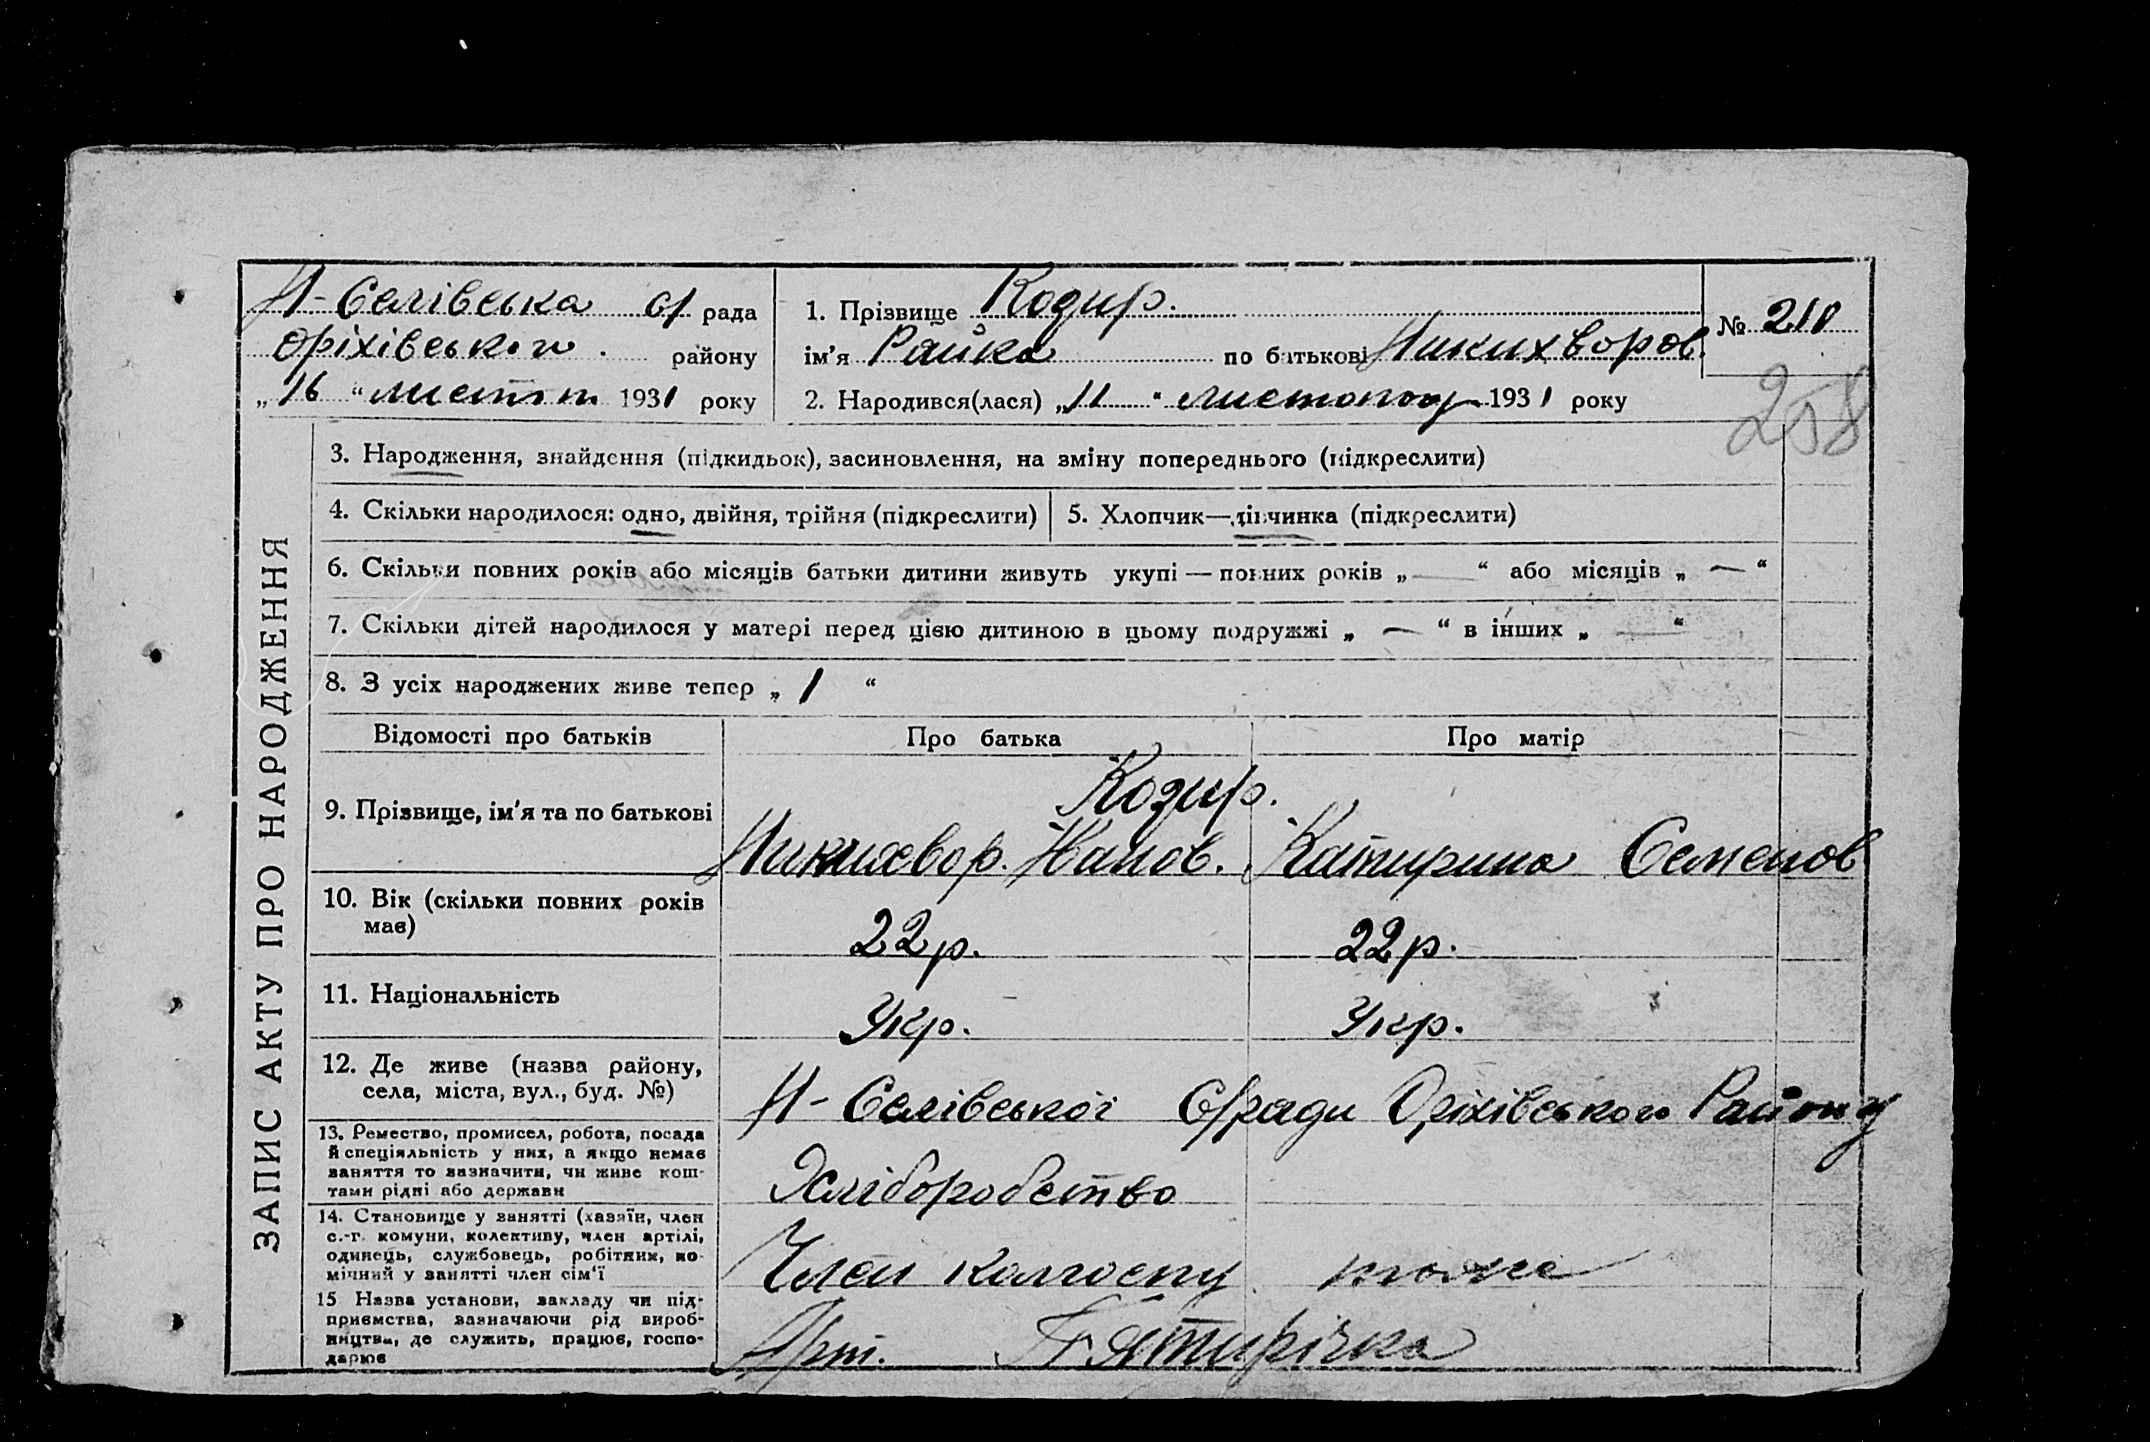 Н-Селівська с/ рада
Оріхівського району
„16“ листоп. 1931 року
1. Прізвище Козир.
ім’я Райка по батькові Никихворов.
2. Народився(лася) „11“ листопад 1931 року
№ 210
258
ЗАПИС АКТУ ПРО НАРОДЖЕННЯ
3. Народження, знайдення (підкидьок), засиновлення, на зміну попереднього (підкреслити)
4. Скільки народилося: одно, двійня, трійня (підкреслити)
5. Хлопчик—дівчинка (підкреслити)
6. Скільки повних років або місяців батьки дитини живуть укупі — повних років „—“ або місяців „—“
7. Скільки дітей народилося у матері перед цією дитиною в цьому подружжі „—“ в інших „—“
8. З усіх народжених живе тепер „1“
Відомості про батьків Про батька Про матір
Козир.
9. Прізвище, ім’я та по батькові Никихвор. Иванов. Катирина Семенов
10. Вік (скільки повних років
має) 22 р. 22 р.
11. Національність Укр. Укр.
12. Де живе (назва району,
села, міста, вул., буд. №) Н-Селівської С/ради Оріхівського Району
13. Ремество, промисел, робота, посада
й спеціяльність у них, а якщо немає
заняття то зазначити, чи живе кош-
тами рідні або держави Хліборобство
14. Становище у занятті (хазяїн, член
с.-г. комуни, колективу, член артілі,
одинець, службовець, робітник, по-
мічний у занятті член сім’ї Член колгоспу тоже
15 Назва установи, закладу чи під-
приємства, зазначаючи рід вироб-
ництва, де служить, працює, госпо-
дарює Арт. Пятирічка